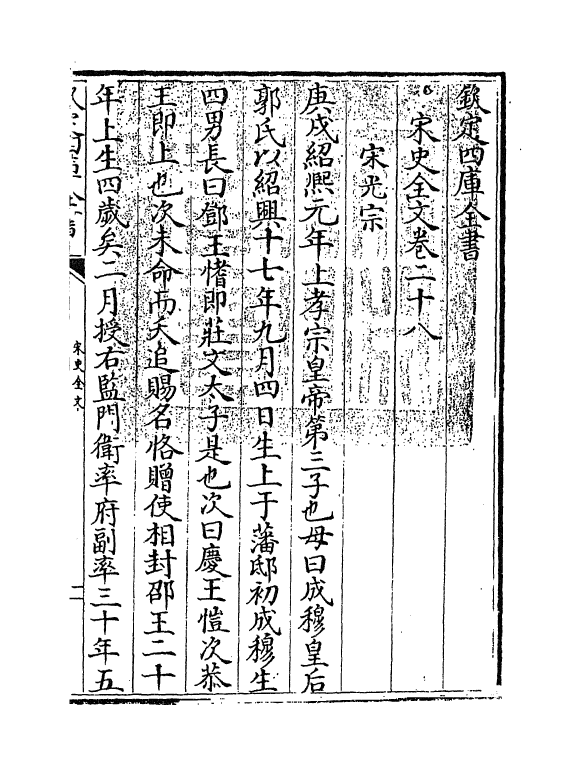 欽定四庫全書
宋史全文卷二十八
宋光宗
庚戌紹熙元年上孝宗皇帝第三子也母曰成穆皇后
郭氏以紹興十七年九月四日生上于藩邸初成穆生
四男長曰鄧王愭即莊文太子是也次曰慶王愷次恭
王即上也次未命而夭追賜名恪贈使相封邵王二十
年上生四歲矣二月授右監門衛率府副率三十年五
宋史全文